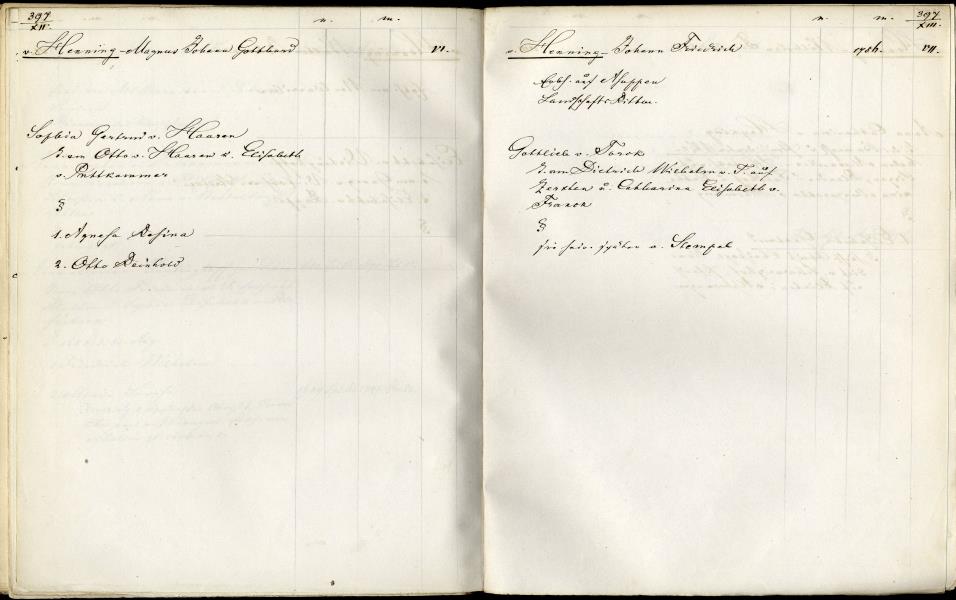 397 n. m.
XII.
v. Henning-Magnus Johann Gotthard VI.
Sophia Gertrud v. Haaren
T. am Otto v. Haaren u. Elisabeth
v. Puttkammer
§
1. Agnesa Rosina
2. Otto Reinhold
n. m. 397
XIII.
v. Henning-Johann Friedrich 1786. VII.
Erbh. auf
Landschafts
Gottlieb v. Torck
T. am Dietrich Wilhelm v. T. auf
u. Catharina Elisabeth v.
Franck
§
v. Stempel